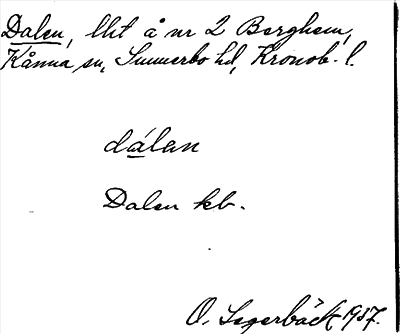 Dalen, lht å nr 2 Berghem,
Kånna sn, Sunnerbo hd, Kronob. l.
dálan
Dalen kb.
O. Segerbäck 1937.